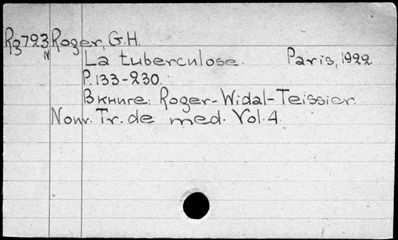 Rg723 Roger, G.H.
N
La tuberculose. Paris, 1922
P. 133-230.
В книге: Roger-Widal-Teissier.
Nouv. Tr. de med. Vol. 4.